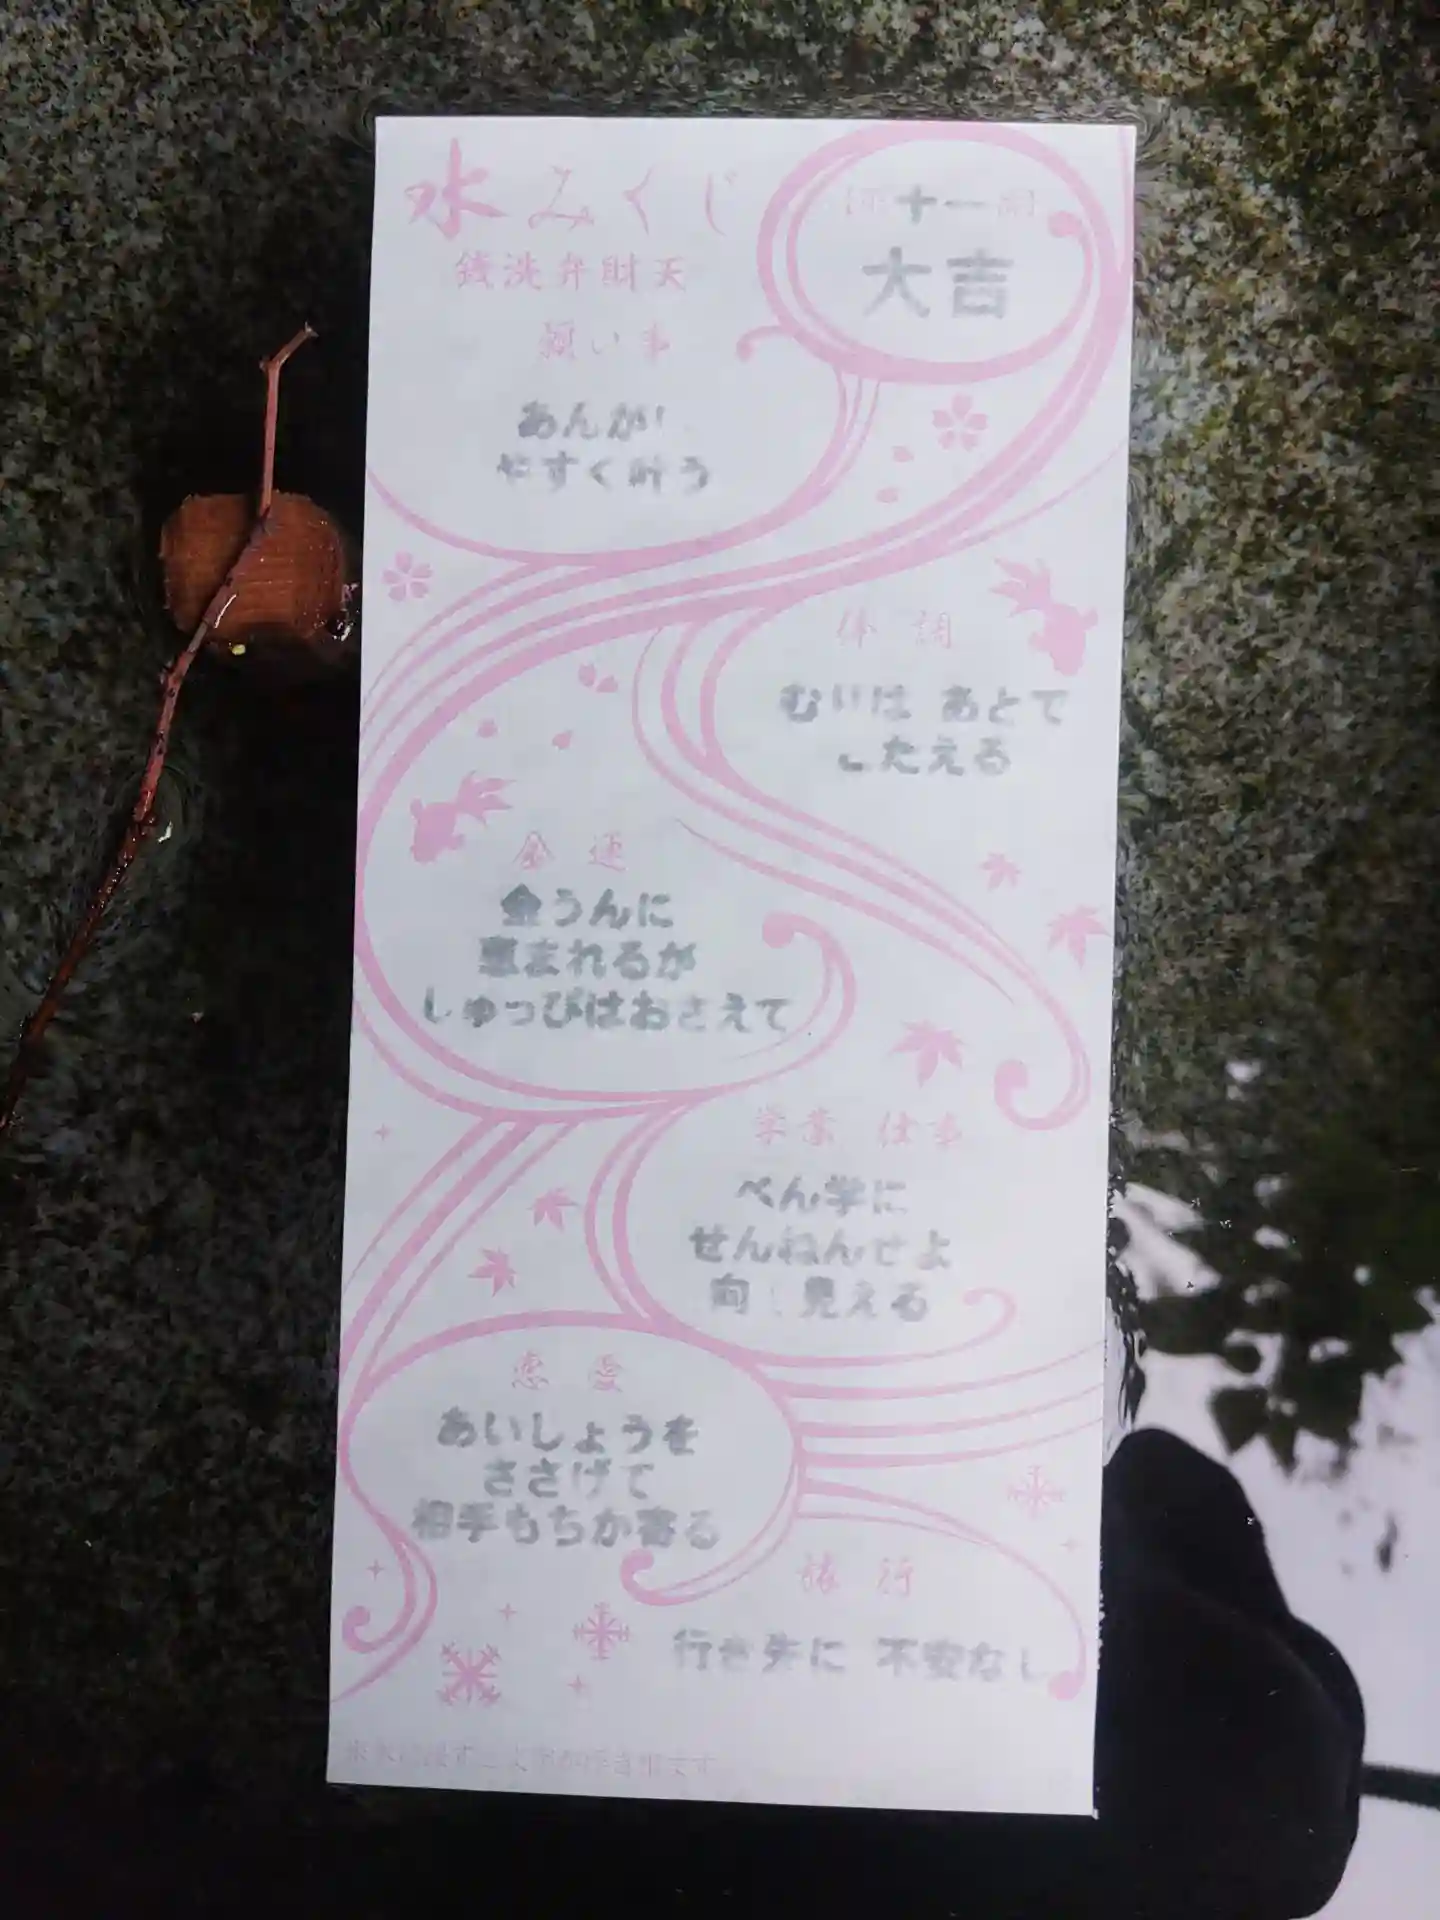 水みくじ
銭洗弁財天
十一
大吉
願い事
あんが
やすく叶う
体調
むりは あとで
こたえる
金運
金うんに
恵まれるが
しゅっぴはおさえて
学業 仕事
べん学に
せんねんせよ
向 見える
恋愛
あいしょうを
ささげて
相手もちか寄る
旅行
行き先に 不安なし